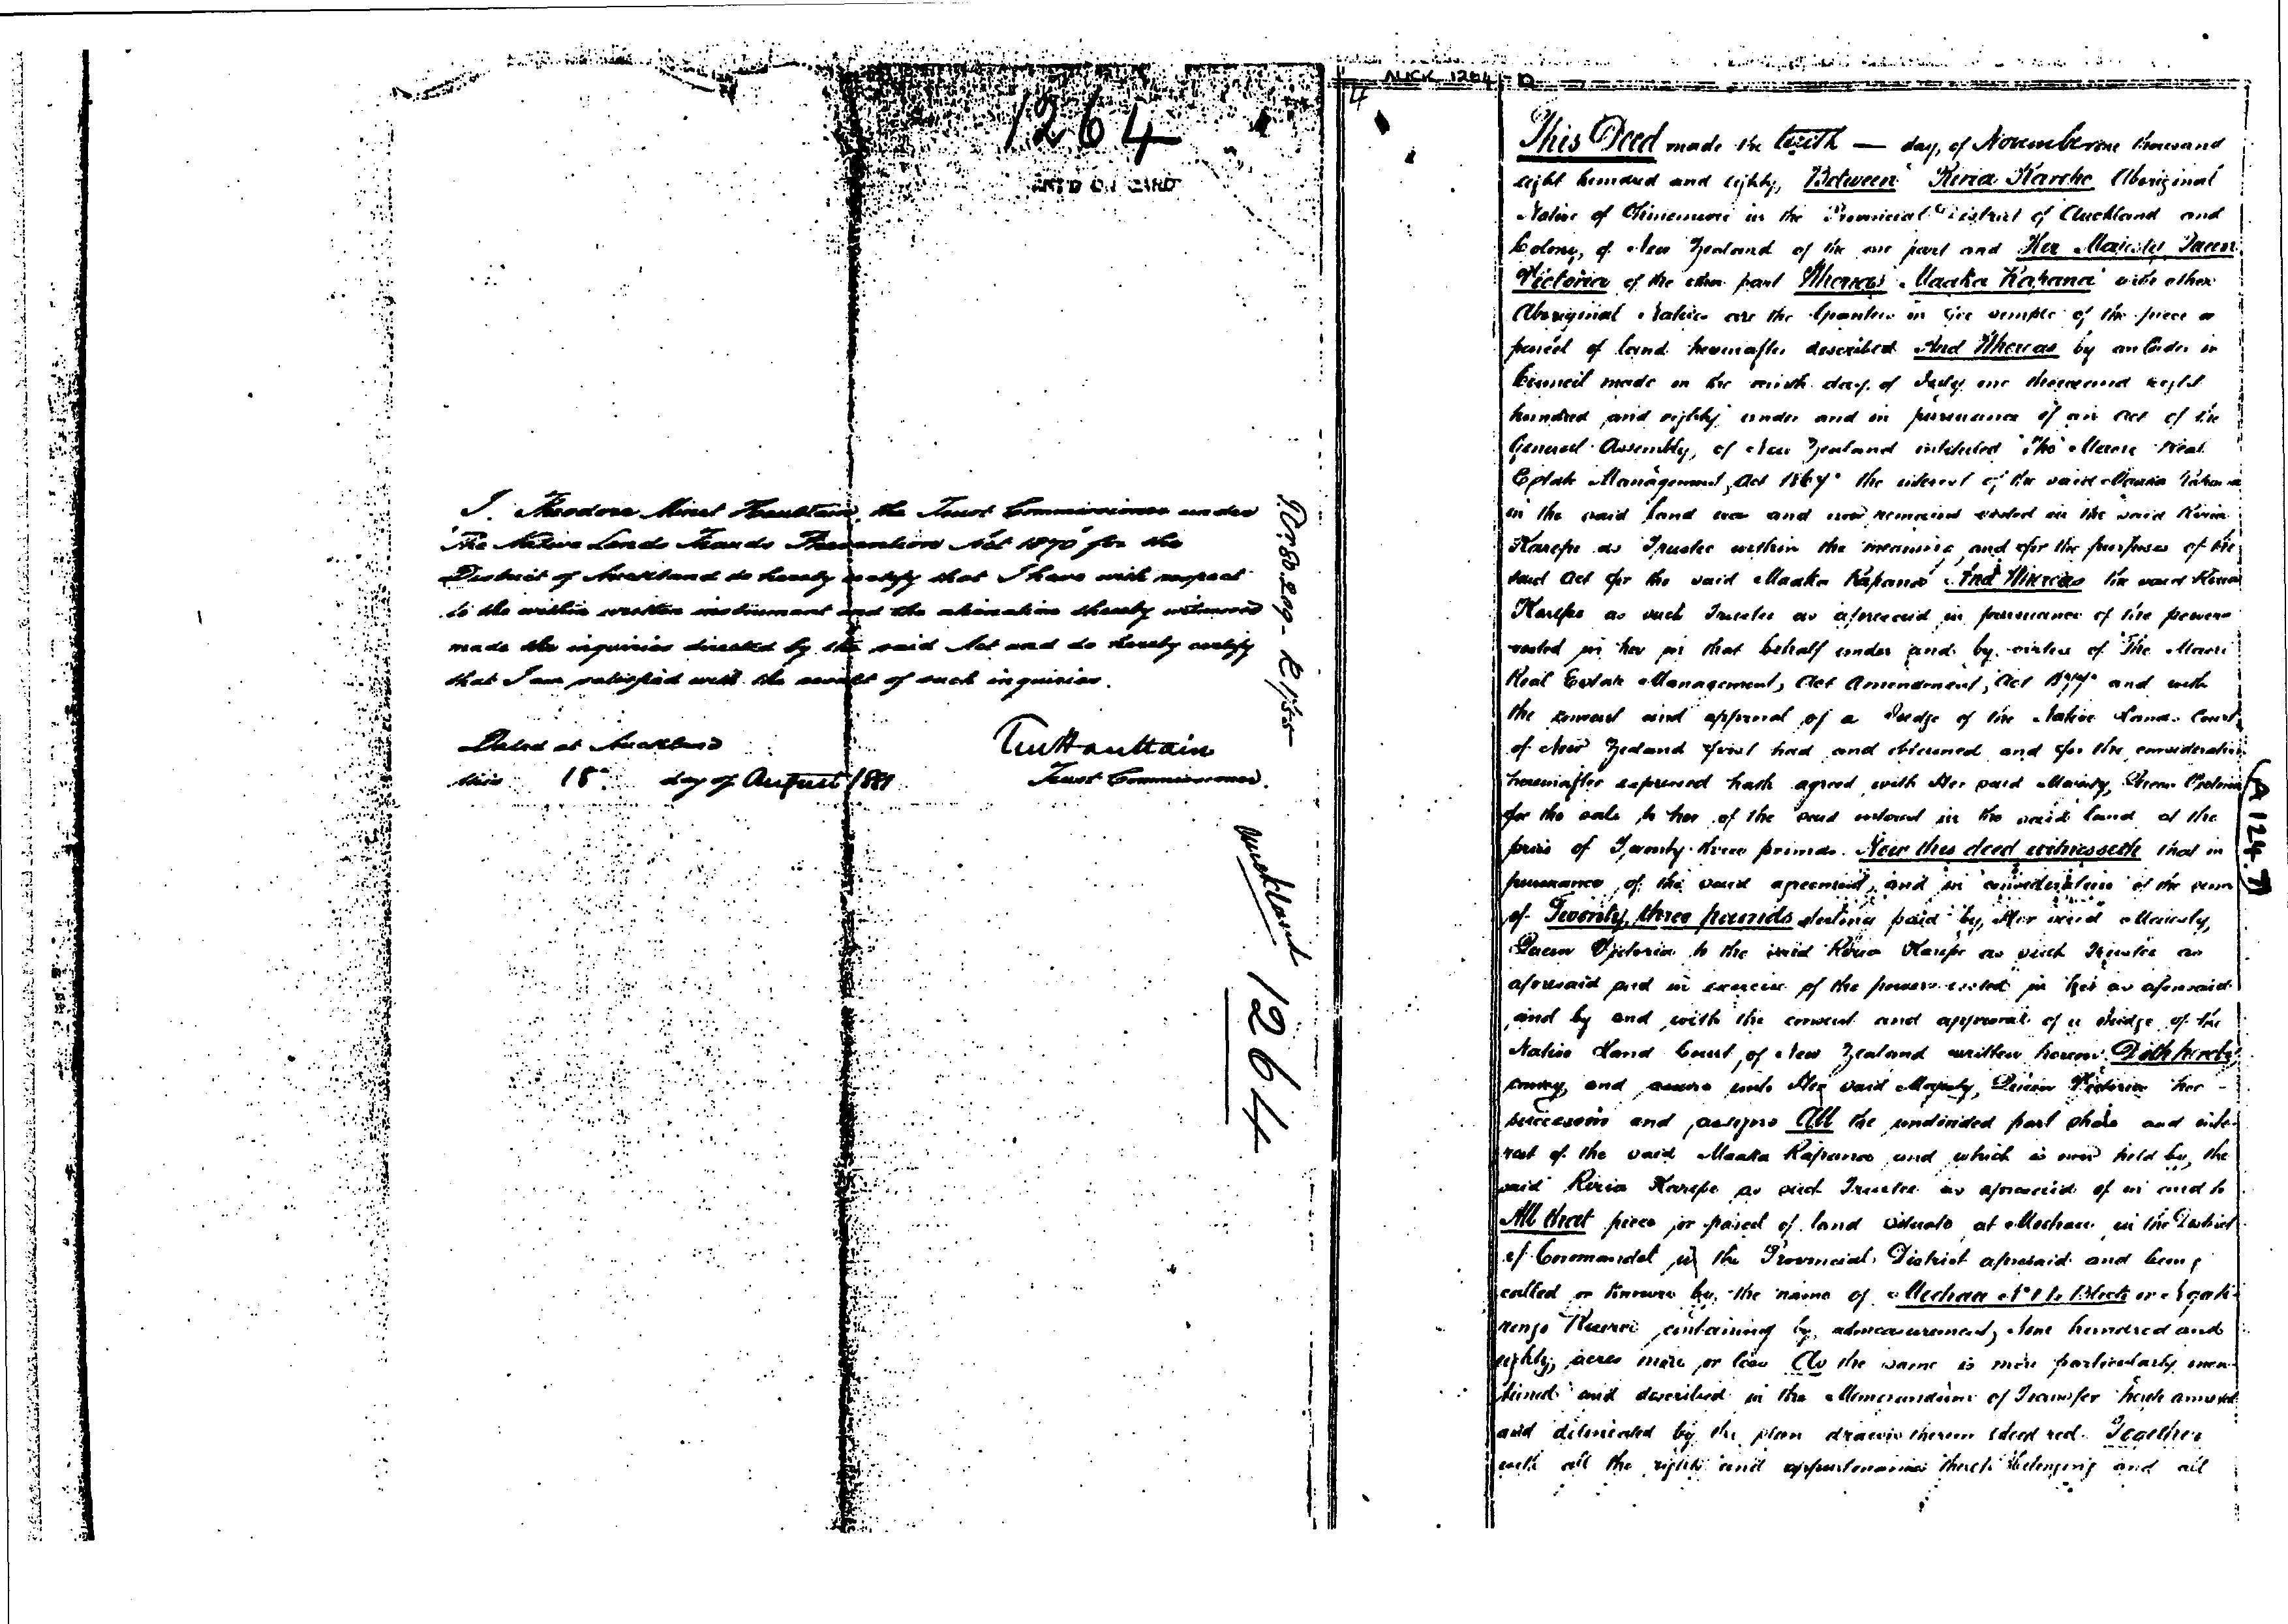 1264
ENT'D ON CARD
I, Theodore Minet Haultain, the Trust Commissioner under
"The Native Lands Frauds Prevention Act 1870" for the
District of Auckland do hereby certify that I have with respect
to the within written instrument and the alienation thereby witnessed
made the inquiries directed by the said Act and do hereby certify
that I am satisfied with the result of such inquiries.
Dated at Auckland
this 18th day of August 1881
TM Haultain
Trust Commissioner.
Auckland 1264
AUCK 1264 D
4
This Deed made the tenth — day of November one thousand
eight hundred and eighty, Between Keria Karepe Aboriginal
Native of Ohinemuri in the Provincial District of Auckland and
Colony, of New Zealand of the one part and Her Majesty Queen
Victoria of the other part Whereas Maaka Kapana with other
Aboriginal Natives are the Grantees in fee simple of the piece or
parcel of land hereinafter described And Whereas by an Order in
Council made on the ninth day of July one thousand eight
hundred and eighty under and in pursuance of an Act of the
General Assembly, of New Zealand intituled "The Maori Real
Estate Management Act 1867" the interest of the said Maaka Kapana
in the said land was and now remains vested in the said Keria
Karepe as Trustee within the meaning and for the purposes of the
said Act for the said Maaka Kapana And Whereas the said Keria
Karepe as such Trustee as aforesaid in pursuance of the powers
vested in her in that behalf under and by virtue of The Maori
Real Estate Management, Act Amendment, Act 1877 and with
the consent and approval of a Judge of the Native Lands Court
of New Zealand first had and obtained and for the consideration
hereinafter expressed hath agreed with Her said Majesty, Queen Victoria
for the sale to her of the said interest in the said land at the
price of Twenty three pounds. Now this deed witnesseth that in
pursuance of the said agreement, and in consideration of the sum
of Twenty, three pounds sterling paid by, Her said Majesty,
Queen Victoria to the said Keria Karepe as such Trustee as
aforesaid and in exercise of the powers vested in her as aforesaid
and by and with the consent and approval of a Judge of the
Native Land Court of New Zealand written hereon Doth hereby
convey, and assure unto Her said Majesty, Queen Victoria her
successors and assigns All the undivided part share and inte-
rest of the said Maaka Kapana and which is now held by, the
said Keria Karepe as such Trustee as aforesaid of in and to
All that piece or parcel of land situate at Moehau in the District
of Coromandel in the Provincial District aforesaid and being
called or known by the name of Moehau No 1 Block or
containing by, admeasurement, hundred and
eighty, acres more or less As the same is more particularly men-
tioned and described in the Memorandum of Transfer hereto annexed
and delineated by the plan drawn thereon edged red. Together
with all the rights and appurtenances thereto belonging and all